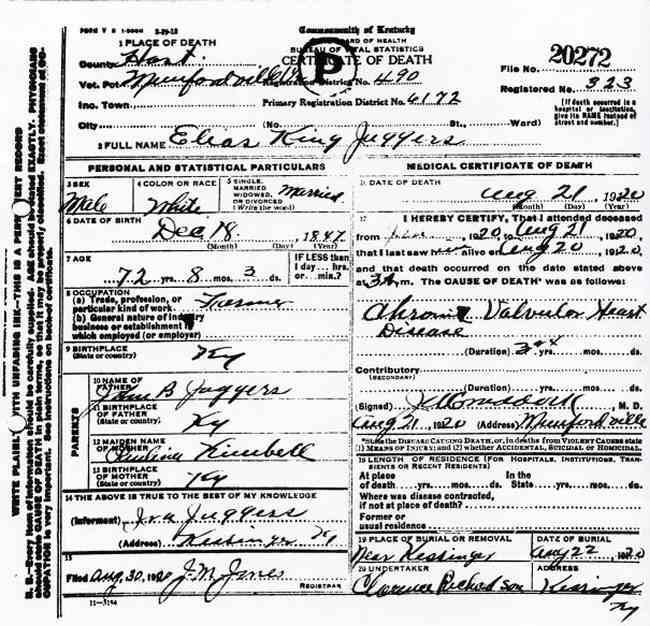 FORM V S 1-200M 3-29-12
Commonwealth of Kentucky
BOARD OF HEALTH
BUREAU OF VITAL STATISTICS
CERTIFICATE OF DEATH
P
1 PLACE OF DEATH
County Hart
Vot. Pct. Munfordville
Registration District No. 490
Inc. Town
Primary Registration District No. 6172
City (No. St., Ward)
File No. 20272
Registered No. 323
[If death occurred in a hospital or institution, give its NAME instead of street and number.]
2 FULL NAME Elias King Jaggers
PERSONAL AND STATISTICAL PARTICULARS
3 SEX
Male
4 COLOR OR RACE
White
5 SINGLE, MARRIED, WIDOWED, OR DIVORCED (Write the word)
Married
6 DATE OF BIRTH
Dec 18, 1847
(Month) (Day) (Year)
7 AGE
72 yrs. 8 mos. 3 ds.
IF LESS than 1 day hrs. or min.?
8 OCCUPATION
(a) Trade, profession, or particular kind of work Farmer
(b) General nature of industry business or establishment in which employed (or employer)
9 BIRTHPLACE (State or country)
Ky
PARENTS
10 NAME OF FATHER
B Jaggers
11 BIRTHPLACE OF FATHER (State or country)
Ky
12 MAIDEN NAME OF MOTHER
Kimbell
13 BIRTHPLACE OF MOTHER (State or country)
Ky
14 THE ABOVE IS TRUE TO THE BEST OF MY KNOWLEDGE
(Informant) Iva Jaggers
(Address) Kessinger Ky
15
Filed Aug, 30, 1920 J. M. Jones
REGISTRAR
11-3184
MEDICAL CERTIFICATE OF DEATH
16 DATE OF DEATH
Aug 21, 1920
(Month) (Day) (Year)
17 I HEREBY CERTIFY, That I attended deceased
from 1920, to Aug 21, 1920,
that I last saw him alive on Aug 20, 1920,
and that death occurred on the date stated above
at 3 A m. The CAUSE OF DEATH* was as follows:
Chronic Valvular Heart
Disease
(Duration) 3 yrs. mos. ds.
Contributory
(SECONDARY)
(Duration) yrs. mos. ds.
(Signed) , M. D.
Aug 21, 1920 (Address) Munfordville
*State the DISEASE CAUSING DEATH, or, in deaths from VIOLENT CAUSES state
(1) MEANS OF INJURY; and (2) whether ACCIDENTAL, SUICIDAL or HOMICIDAL.
18 LENGTH OF RESIDENCE (FOR HOSPITALS, INSTITUTIONS, TRANSIENTS OR RECENT RESIDENTS)
At place of death yrs. mos. ds. In the State yrs. mos. ds.
Where was disease contracted,
if not at place of death?
Former or
usual residence
19 PLACE OF BURIAL OR REMOVAL
Near Kessinger
DATE OF BURIAL
Aug 22, 1920
20 UNDERTAKER
Clarence Richardson
ADDRESS
Kessinger
Ky
WRITE PLAINLY WITH UNFADING INK—THIS IS A PERMANENT RECORD
N. B.—Every item of information should be carefully supplied. AGE should be stated EXACTLY. PHYSICIANS
should state CAUSE OF DEATH in plain terms, so that it may be properly classified. Exact statement of OC-
CUPATION is very important. See instructions on back of certificate.